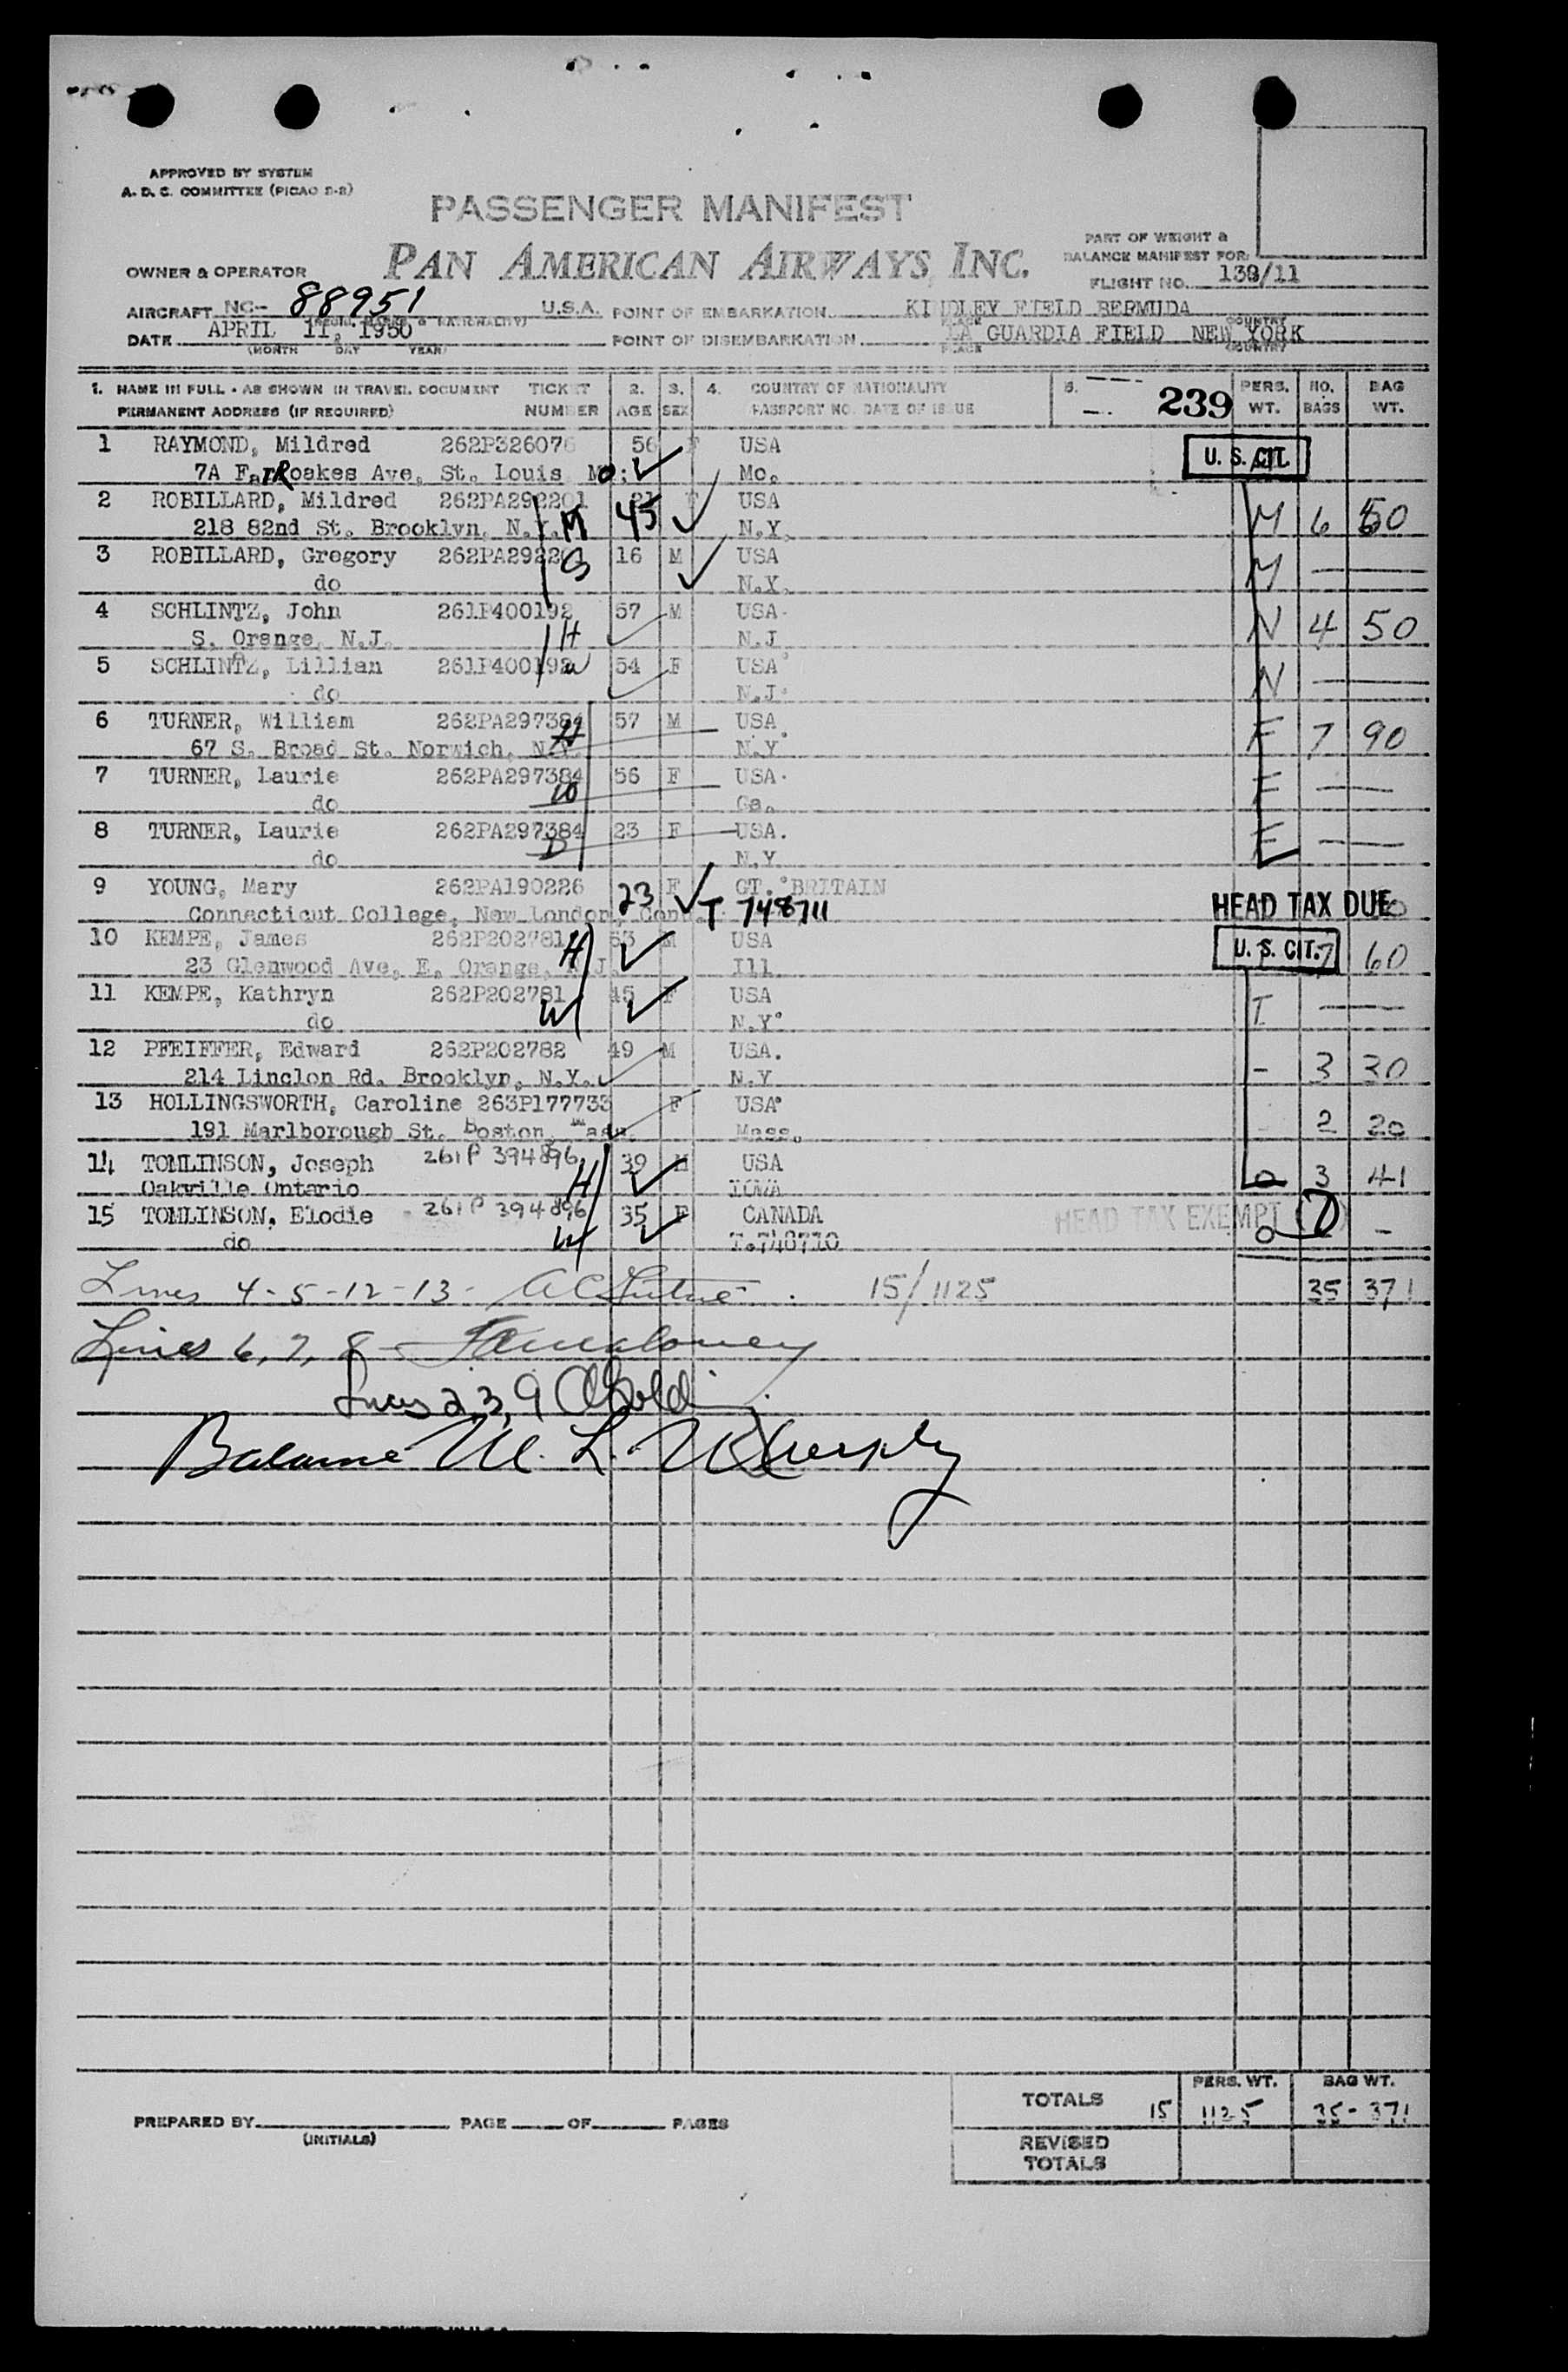 APPROVED BY SYSTEM
A. D. C. COMMITTEE (PICAO 2-2)
PASSENGER MANIFEST
PAN AMERICAN AIRWAYS, INC.
PART OF WEIGHT &
BALANCE MANIFEST FOR:
OWNER & OPERATOR
FLIGHT NO. 139/11
AIRCRAFT NC- 88951 U.S.A. POINT OF EMBARKATION KINDLEY FIELD BERMUDA
DATE APRIL 11, 1950 POINT OF DISEMBARKATION LA GUARDIA FIELD NEW YORK
(MONTH DAY YEAR) PLACE COUNTRY
1. NAME IN FULL - AS SHOWN IN TRAVEL DOCUMENT TICKET 2. 3. 4. COUNTRY OF NATIONALITY 5. 239 PERS. NO. BAG
PERMANENT ADDRESS (IF REQUIRED) NUMBER AGE SEX PASSPORT NO. DATE OF ISSUE WT. BAGS WT.
1 RAYMOND, Mildred 262P326076 56 F USA U. S. CIT.
7A FarRoakes Ave. St. Louis Mo. Mo.
2 ROBILLARD, Mildred 262PA292201 45 F USA M 6 50
218 82nd St. Brooklyn, N.Y. M N.Y.
3 ROBILLARD, Gregory 262PA29220 S 16 M USA M
do N.Y.
4 SCHLINTZ, John 261P400192 57 M USA N 4 50
S. Orange, N.J. H N.J
5 SCHLINTZ, Lillian 261P400192 W 54 F USA N
do N.J.
6 TURNER, William 262PA297384 57 M USA F 7 90
67 S. Broad St. Norwich, N.Y. H N.Y
7 TURNER, Laurie 262PA297384 56 F USA. F
do W Ga.
8 TURNER, Laurie 262PA297384 23 F USA. F
do D N.Y
9 YOUNG, Mary 262PA190226 23 F GT. BRITAIN
Connecticut College, New London, Conn. T 748711 HEAD TAX DUE
10 KEMPE, James 262P202781 H 53 M USA U. S. CIT. 7 60
23 Glenwood Ave, E. Orange, N.J. Ill
11 KEMPE, Kathryn 262P202781 W 45 F USA I
do N.Y
12 PFEIFFER, Edward 262P202782 49 M USA. - 3 30
214 Linclon Rd. Brooklyn, N.Y. N.Y
13 HOLLINGSWORTH, Caroline 263P177733 F USA 2 20
191 Marlborough St. Boston, Mass. Mass.
14 TOMLINSON, Joseph 261P 394896 H 39 M USA O 3 41
Oakville Ontario IOWA
15 TOMLINSON, Elodie 261P 394896 W 35 F CANADA HEAD TAX EXEMPT (7) O -
do T.748710
Lines 4-5-12-13- 15/1125 35 371
Lines 6, 7, 8 -
Lines 2, 3, 9
Balance M. L. Murphy
PREPARED BY PAGE OF PAGES
(INITIALS)
PERS. WT. BAG WT.
TOTALS 15 1125 35-371
REVISED
TOTALS